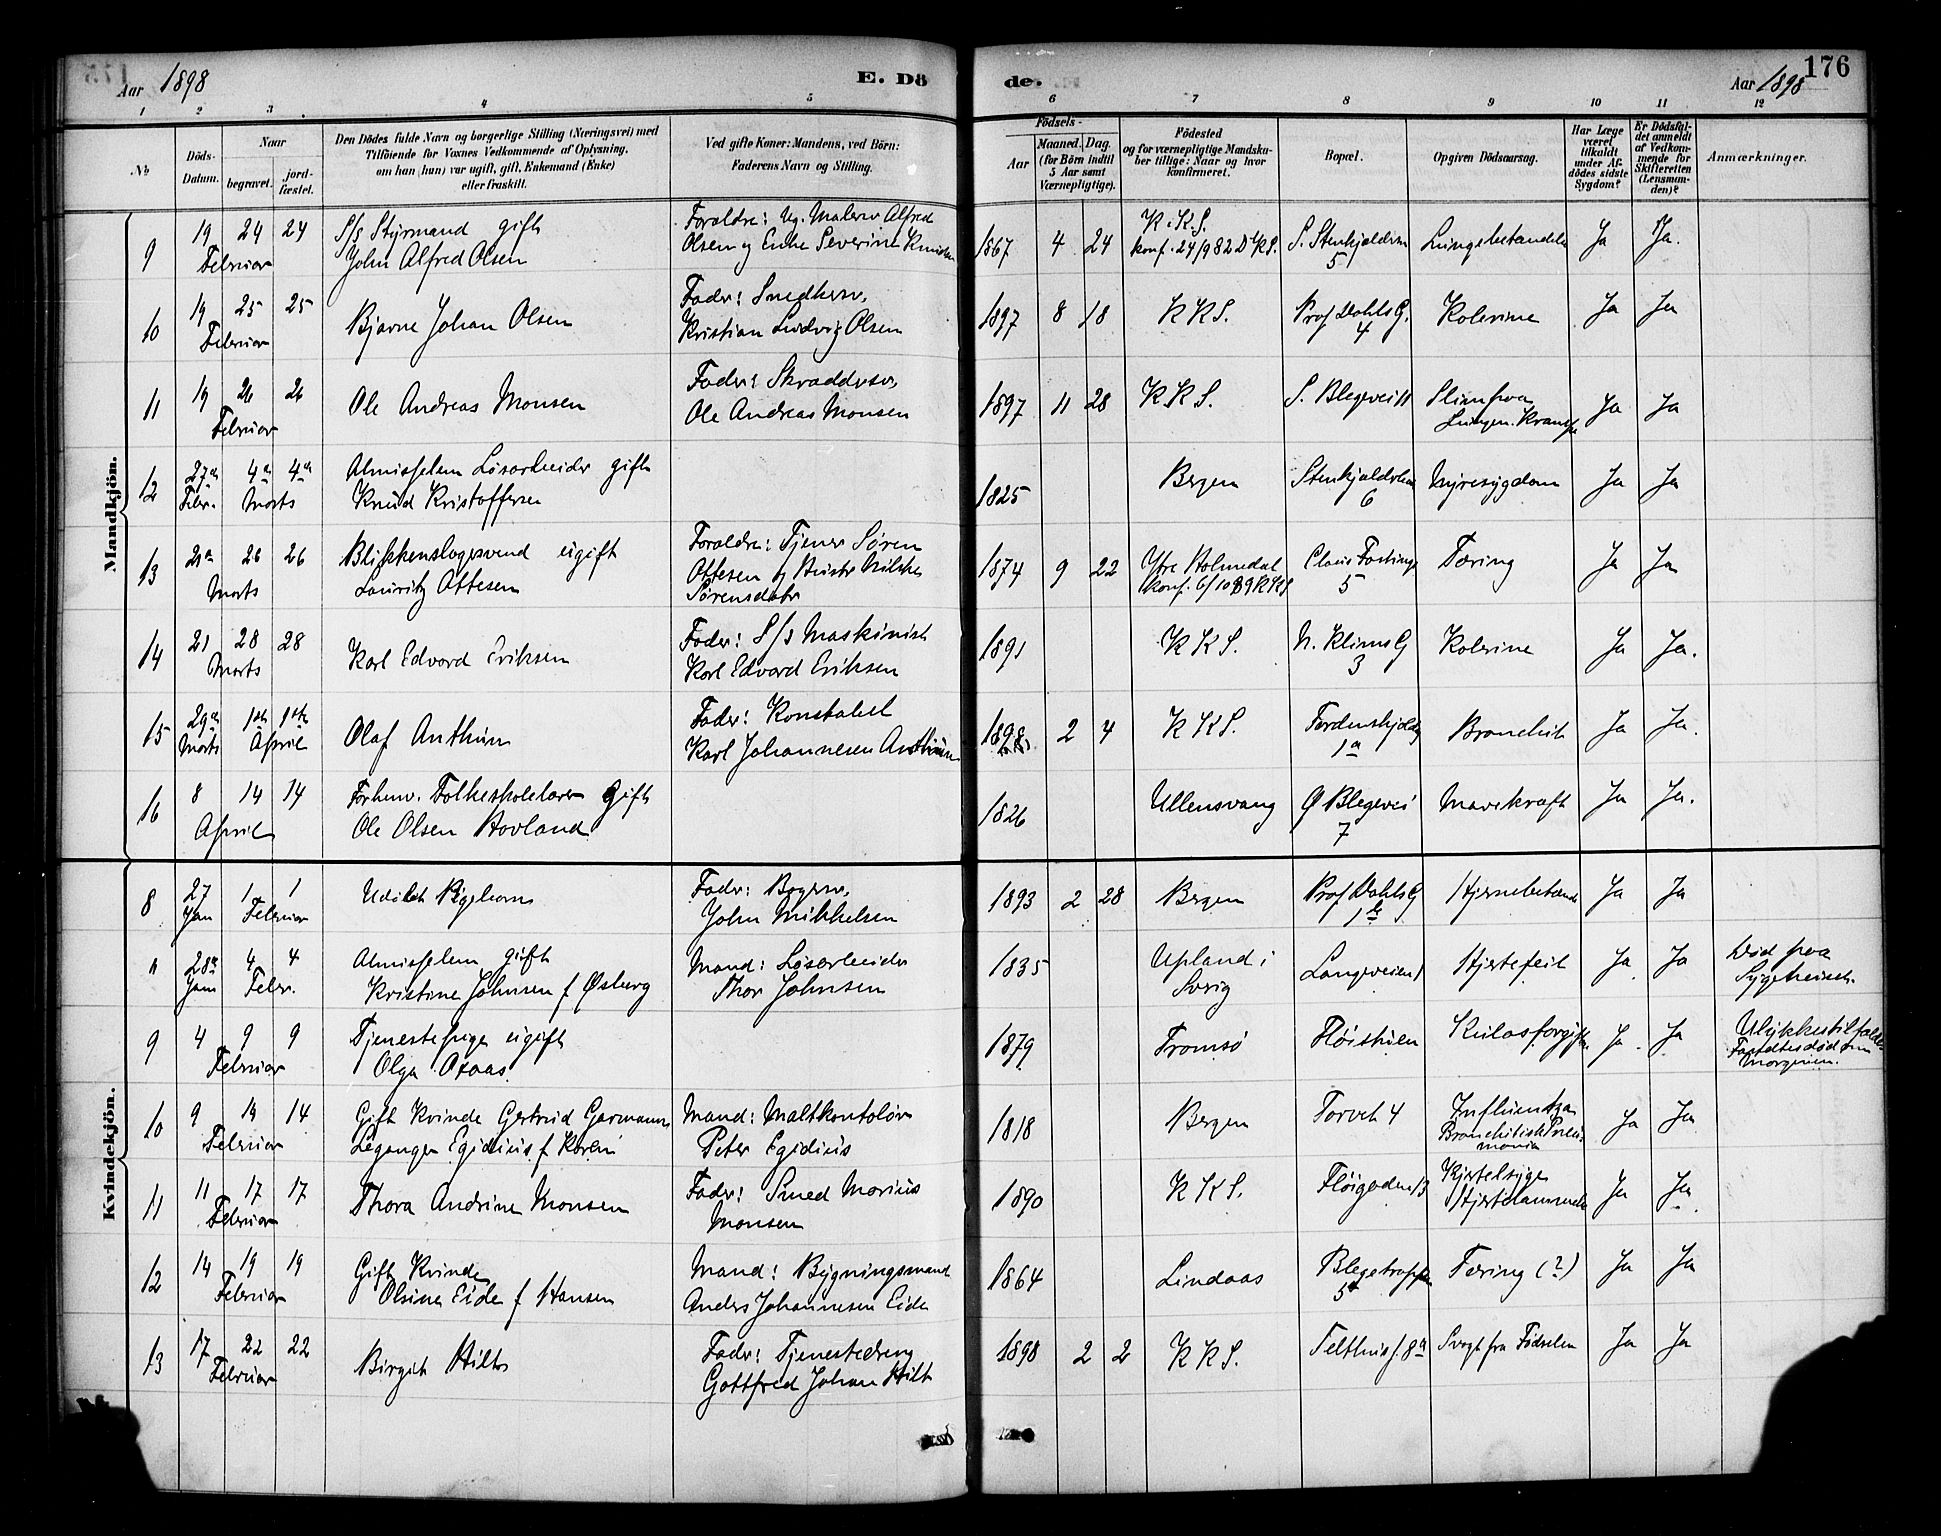 Aar 1898
E. Dö
de.
Aar 1898
176
1 2 3 4 5
6 7 8 9 10 11 12
No
Döds-
Datum.
Naar
begravet.
jord-
fæstet.
Den Dödes fulde Navn og borgerlige Stilling (Næringsvei) med
Tilföiende for Voxnes Vedkommende af Oplysning.
om han (hun) var ugift, gift, Enkemand (Enke)
eller fraskilt.
Ved gifte Koner: Mandens, ved Börn:
Faderens Navn og Stilling.
Födsels-
Aar
Maaned. Dag.
(for Börn indtil
5 Aar samt
Værnepligtige).
Födested
og for værnepligtige Mandska-
ber tillige: Naar og hvor
konfirmeret.
Bopæl.
Opgiven Dödsaarsag.
Har Læge
været
tilkaldt
under Af-
dödes sidste
Sygdom?
Er Dödsfal-
det anmeldt
af Vedkom-
mende for
Skifteretten
(Lensman-
den)?
Anmærkninger.
Mandkjön.
9 19 24 24 Februar
S/s Styrmand gift
John Alfred Olsen
Forældre: Malersv. Alfred
Olsen og Enke Severine Knudsen
1867 4 24
K.K.S.
konf. 24/9 82 D.K.S.
5
Lungebetændelse
Ja Ja.
10 19 25 25 Februar
Bjarne Johan Olsen
Fader: Snedkersv.
Kristian Ludvig Olsen
1897 8 18 K K S.
Prof Dahls G.
4
Kolerine Ja Ja
11 19 26 26 Februar
Ole Andreas Monsen
Fader: Skræddersv.
Ole Andreas Monsen
1897 11 28 K K S. S. Blegevei
Slim paa
Lungen. Krampe
Ja Ja
12 27de 4de 4de
Febr. Marts
Almisselem Løsarbeider gift
Knud Kristoffersen
1825 Bergen
6
Nyresygdom Ja Ja
13 26 26 Marts
Blikkenslagersvend ugift
Lauritz Ottesen
Forældre: Tjener Søren
Ottesen og
Sørensdatr
1874 9 22
Ytre Holmedal
konf. 6/10 89 K K S
Claus Fastings
5
Tæring Ja Ja
14 21 28 28 Marts
Karl Edvard Eriksen
Fader: S/s Maskinist
Karl Edvard Eriksen
1891 K K S.
N. Klims G
3
Kolerine Ja Ja.
15 29de 1ste 1ste
Marts April
Olaf Anthun
Fader: Konstabel
Karl Johannesen Anthun
1898 2 4 K K S.
1a
Bronchit Ja Ja.
16 8 14 14 April
Forhenv. Folkeskolelærer gift
Ole Olsen Hovland
1826 Ullensvang
Ø Blegevei
7
Mavekræft Ja Ja.
Kvindekjön.
8 27 1 1
Jan Februar
Fader: Bagersv.
John Mikkelsen
1893 2 28 Bergen
Prof Dahls G
1b
Hjernebetænd Ja Ja
" 28de 4 4
Jan Febr.
Almisselem gift
Kristine Johnsen f Øsberg
Mand: Løsarbeider
Thor Johnsen
1835
Upland i
Sverig
Langeveien 1
Hjertefeil Ja Ja
Død paa
Sygehuset.
9 4 9 9 Februar
Tjenestepige ugift
Olga Aaas
1879 Tromsø Fløistuen
Kulosforgift. Ja Ja
Ulykkestilfælde
Fandtes død om
Morgenen.
10 9 14 14 Februar
Gift Kvinde Gertrud Garmann
Leganger Egidius f Koren
Mand: Maltkontolør
Peter Egidius
1818 Bergen Torvet 4
Influentza
Bronchitisk Pneu-
monia
Ja Ja
11 11 17 17 Februar
Thora Andrine Monsen
Fader: Smed Marius
Monsen
1890 K K S. Fløigaden 13
Kjertelsyge
Hjertelammelse
Ja Ja.
12 14 19 19 Februar
Gift Kvinde
Olsine Eide f Hansen
Mand: Bygningsmand
Anders Johannesen Eide
1864 Lindaas
Blegetrappen
5a
Tæring (?) Ja Ja
13 17 22 22 Februar
Birgit Hilt
Fader: Tjenestedreng
Gottfred Johan Hilt
1898 2 2 K K S. 8a
Svagt fra Fødselen Ja Ja